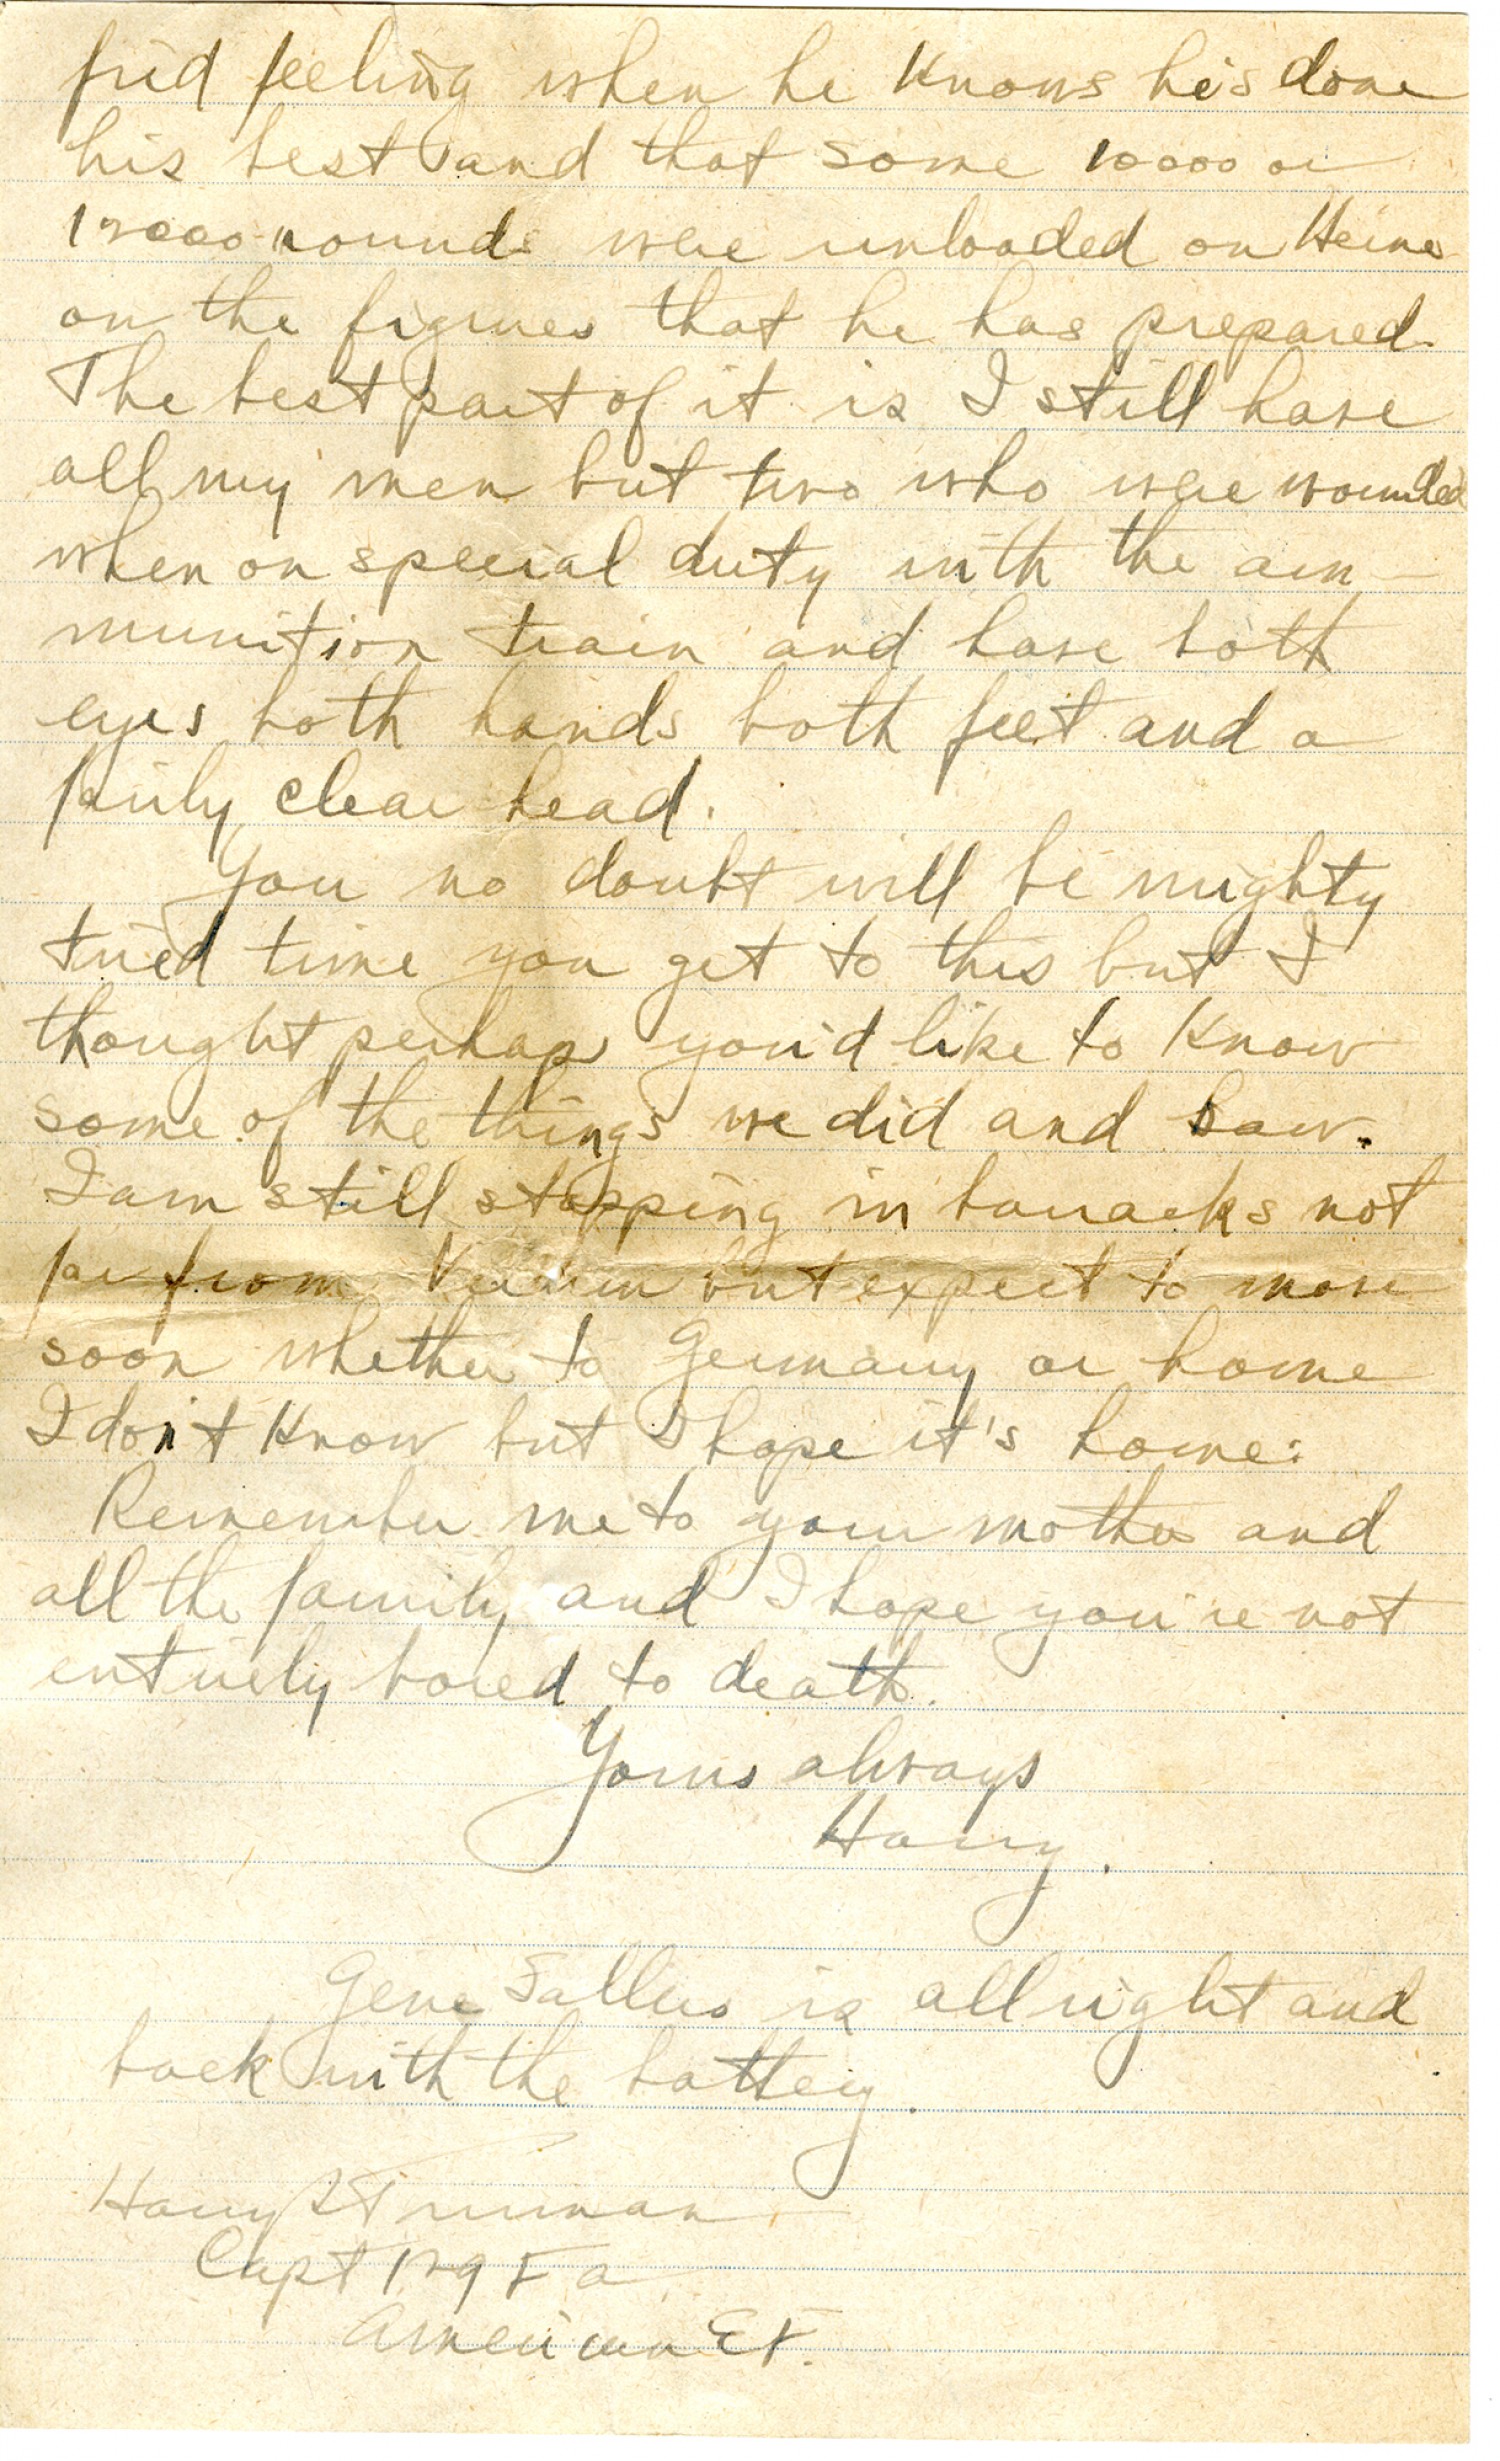 fied feeling when he knows he's done
his best and that some 10000 or
12000 rounds were unloaded on Heinie
on the figures that he has prepared.
The best part of it is I still have
all my men but two who were wounded
when on special duty with the am-
munition train and have both
eyes both hands both feet and a
fairly clear head.
You no doubt will be mighty
tired time you get to this but I
thought perhaps you'd like to know
some of the things we did and saw.
I am still stopping in barracks not
far from Verdun but expect to move
soon whether to Germany or home
I don't know but I hope it's home.
Remember me to your mother and
all the family and I hope you're not
entirely bored to death.
Yours always
Harry.
Gene is all right and
back with the battery.
Harry S Truman
Capt 129 F a
American E F.